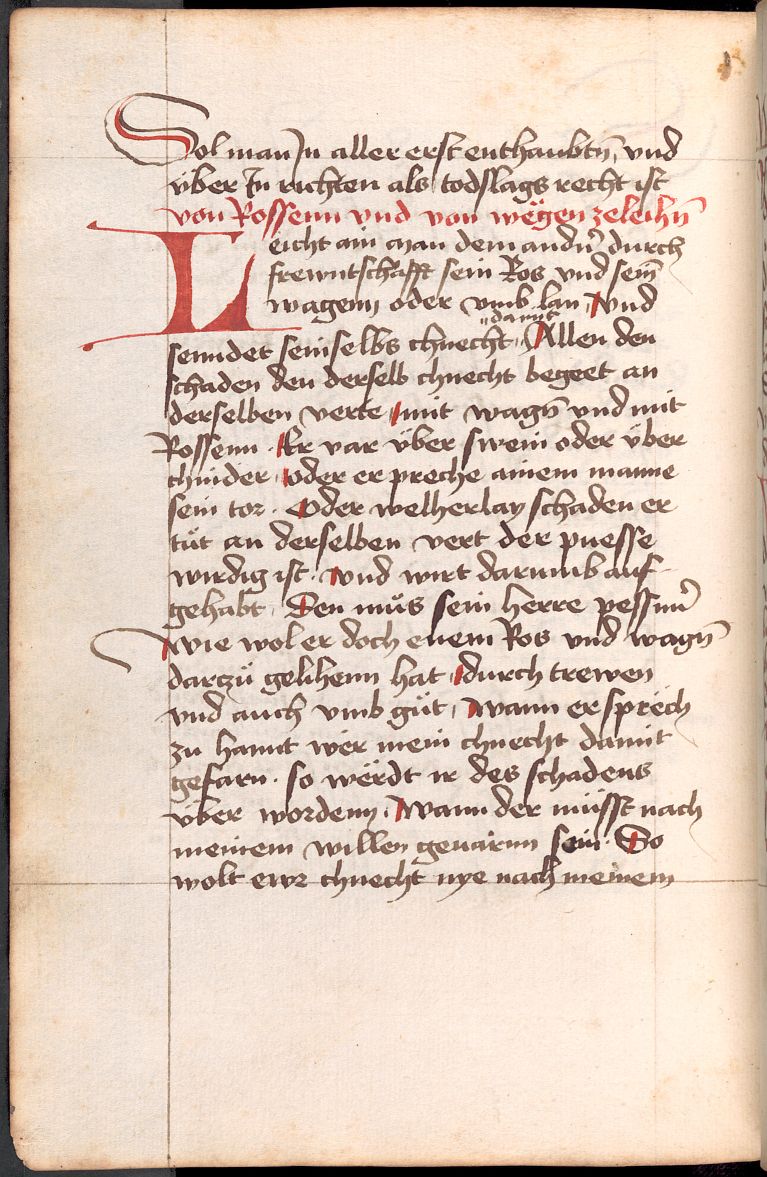 Sol man In aller erst enthaubtn̄ vnd
vber In richten als todslags recht ist
von Rossenn vnd von wëgen zeleihn̄
Leicht ain man dem andn̄ durch
frewntschafft sein Ros vnd sein̄
wagenn oder vmb lan Vnd
damit
senndet sein selbs chnecht Allen den
schaden den derselb chnecht begeet an
derselben verte mit wagn̄ vnd mit
Rossenn · Er var vber swein oder vber
chinder oder er preche ainem manne
sein tor · Oder welherlay schaden er
tüt an derselben vert der puesse
wirdig ist · Vnd wirt darumb auf
gehabt Den müs sein herre pessnn̄
Wie wol er doch enem Ros vnd wagn̄
darczü gelihenn hat durch trewen
vnd auch vmb güt Wann er sprëch
zu hannt wër mein chnecht damit
gefarn · so wërdt ir des schadens
vber wordenn · Wann der müsst nach
meinem willen geuarnn sein · So
wolt ewr chnecht nye nach meinem